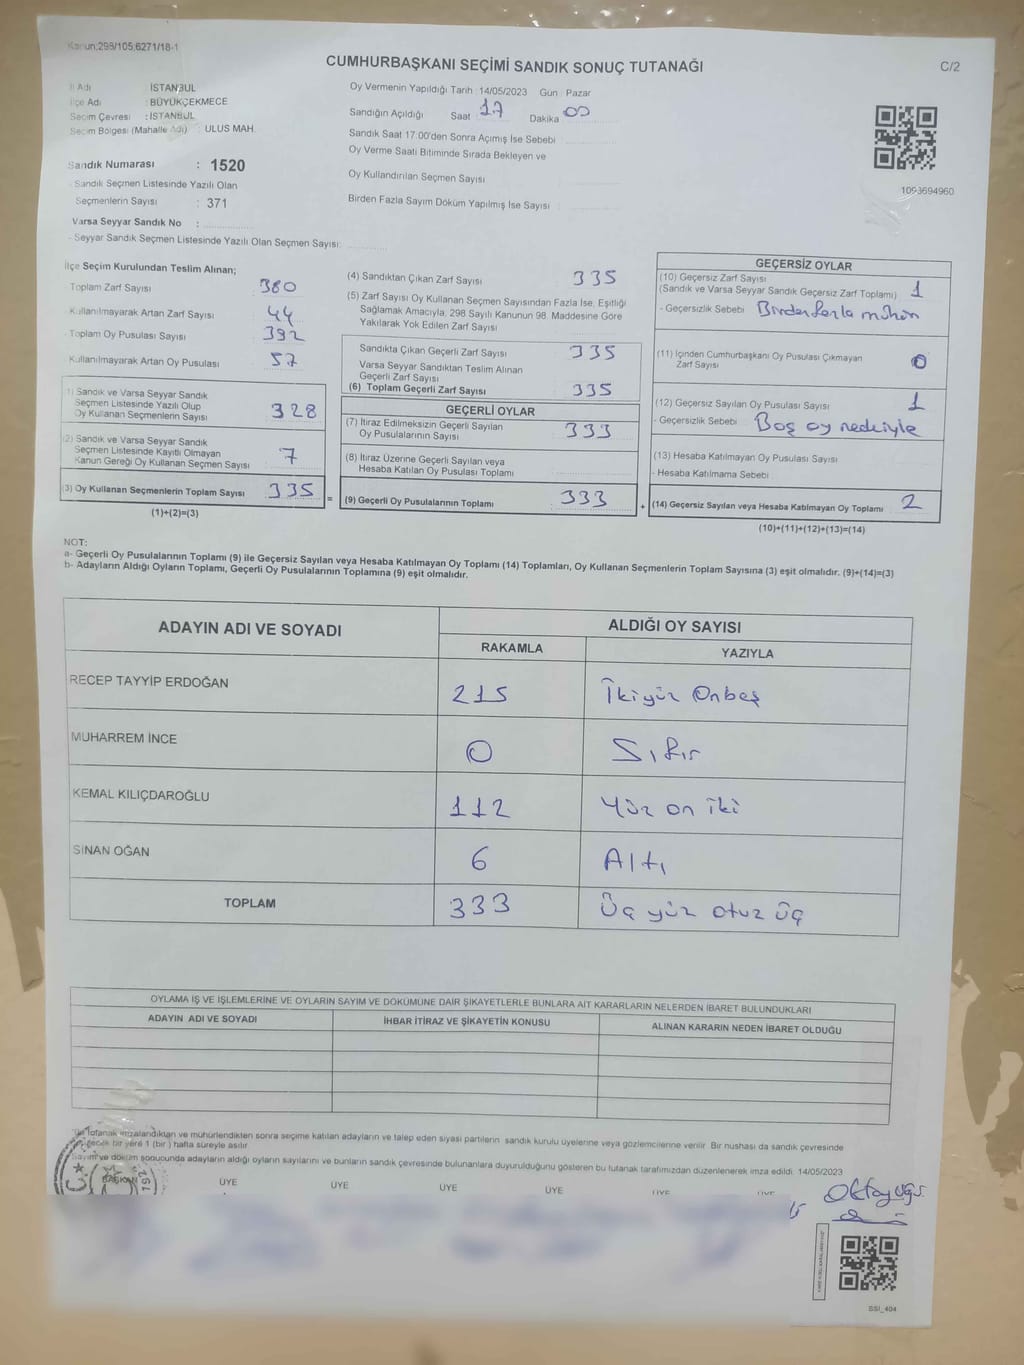 Kanun:298/105;6271/18-1
CUMHURBAŞKANI SEÇİMİ SANDIK SONUÇ TUTANAĞI
C/2
İl Adı : İSTANBUL
İlçe Adı : BÜYÜKÇEKMECE
Seçim Çevresi : İSTANBUL
Seçim Bölgesi (Mahalle Adı) : ULUS MAH.
Sandık Numarası : 1520
- Sandık Seçmen Listesinde Yazılı Olan
Seçmenlerin Sayısı : 371
Varsa Seyyar Sandık No :
- Seyyar Sandık Seçmen Listesinde Yazılı Olan Seçmen Sayısı:
Oy Vermenin Yapıldığı Tarih :14/05/2023 Gün : Pazar
Sandığın Açıldığı Saat 17 Dakika 00
Sandık Saat 17:00'den Sonra Açımış İse Sebebi
Oy Verme Saati Bitiminde Sırada Bekleyen ve
Oy Kullandırılan Seçmen Sayısı
Birden Fazla Sayım Döküm Yapılmış İse Sayısı
1093694960
İlçe Seçim Kurulundan Teslim Alınan;
Toplam Zarf Sayısı 380
- Kullanılmayarak Artan Zarf Sayısı 44
- Toplam Oy Pusulası Sayısı 392
- Kullanılmayarak Artan Oy Pusulası 57
(1) Sandık ve Varsa Seyyar Sandık
Seçmen Listesinde Yazılı Olup
Oy Kullanan Seçmenlerin Sayısı 328
(2) Sandık ve Varsa Seyyar Sandık
Seçmen Listesinde Kayıtlı Olmayan
Kanun Gereği Oy Kullanan Seçmen Sayısı 7
(3) Oy Kullanan Seçmenlerin Toplam Sayısı 335 =
(1)+(2)=(3)
(4) Sandıktan Çıkan Zarf Sayısı 335
(5) Zarf Sayısı Oy Kullanan Seçmen Sayısından Fazla İse, Eşitliği
Sağlamak Amacıyla, 298 Sayılı Kanunun 98. Maddesine Göre
Yakılarak Yok Edilen Zarf Sayısı
Sandıkta Çıkan Geçerli Zarf Sayısı 335
Varsa Seyyar Sandıktan Teslim Alınan
Geçerli Zarf Sayısı
(6) Toplam Geçerli Zarf Sayısı 335
GEÇERLİ OYLAR
(7) İtiraz Edilmeksizin Geçerli Sayılan
Oy Pusulalarının Sayısı 333
(8) İtiraz Üzerine Geçerli Sayılan veya
Hesaba Katılan Oy Pusulası Toplamı
(9) Geçerli Oy Pusulalarının Toplamı 333 +
GEÇERSİZ OYLAR
(10) Geçersiz Zarf Sayısı
(Sandık ve Varsa Seyyar Sandık Geçersiz Zarf Toplamı) 1
- Geçersizlik Sebebi Birden fazla mühür
(11) İçinden Cumhurbaşkanı Oy Pusulası Çıkmayan
Zarf Sayısı 0
(12) Geçersiz Sayılan Oy Pusulası Sayısı 1
- Geçersizlik Sebebi Boş oy nedeniyle
(13) Hesaba Katılmayan Oy Pusulası Sayısı
- Hesaba Katılmama Sebebi
(14) Geçersiz Sayılan veya Hesaba Katılmayan Oy Toplamı 2
(10)+(11)+(12)+(13)=(14)
NOT:
a- Geçerli Oy Pusulalarının Toplamı (9) ile Geçersiz Sayılan veya Hesaba Katılmayan Oy Toplamı (14) Toplamları, Oy Kullanan Seçmenlerin Toplam Sayısına (3) eşit olmalıdır. (9)+(14)=(3)
b- Adayların Aldığı Oyların Toplamı, Geçerli Oy Pusulalarının Toplamına (9) eşit olmalıdır.
ADAYIN ADI VE SOYADI
ALDIĞI OY SAYISI
RAKAMLA YAZIYLA
RECEP TAYYİP ERDOĞAN 215 İkiyüz Onbeş
MUHARREM İNCE 0 Sıfır
KEMAL KILIÇDAROĞLU 112 Yüz on iki
SİNAN OĞAN 6 Altı
TOPLAM 333 Üç yüz otuz üç
OYLAMA İŞ VE İŞLEMLERİNE VE OYLARIN SAYIM VE DÖKÜMÜNE DAİR ŞİKAYETLERLE BUNLARA AİT KARARLARIN NELERDEN İBARET BULUNDUKLARI
ADAYIN ADI VE SOYADI İHBAR İTİRAZ VE ŞİKAYETİN KONUSU ALINAN KARARIN NEDEN İBARET OLDUĞU
tutanak imzalandıktan ve mühürlendikten sonra seçime katılan adayların ve talep eden siyasi partilerin sandık kurulu üyelerine veya gözlemcilerine verilir. Bir nushası da sandık çevresinde
bir yere 1 (bir) hafta süreyle asılır.
Sayım ve döküm sonucunda adayların aldığı oyların sayılarını ve bunların sandık çevresinde bulunanlara duyurulduğunu gösteren bu tutanak tarafımızdan düzenlenerek imza edildi. 14/05/2023
BAŞKAN ÜYE ÜYE ÜYE ÜYE ÜYE ÜYE
SSI_404